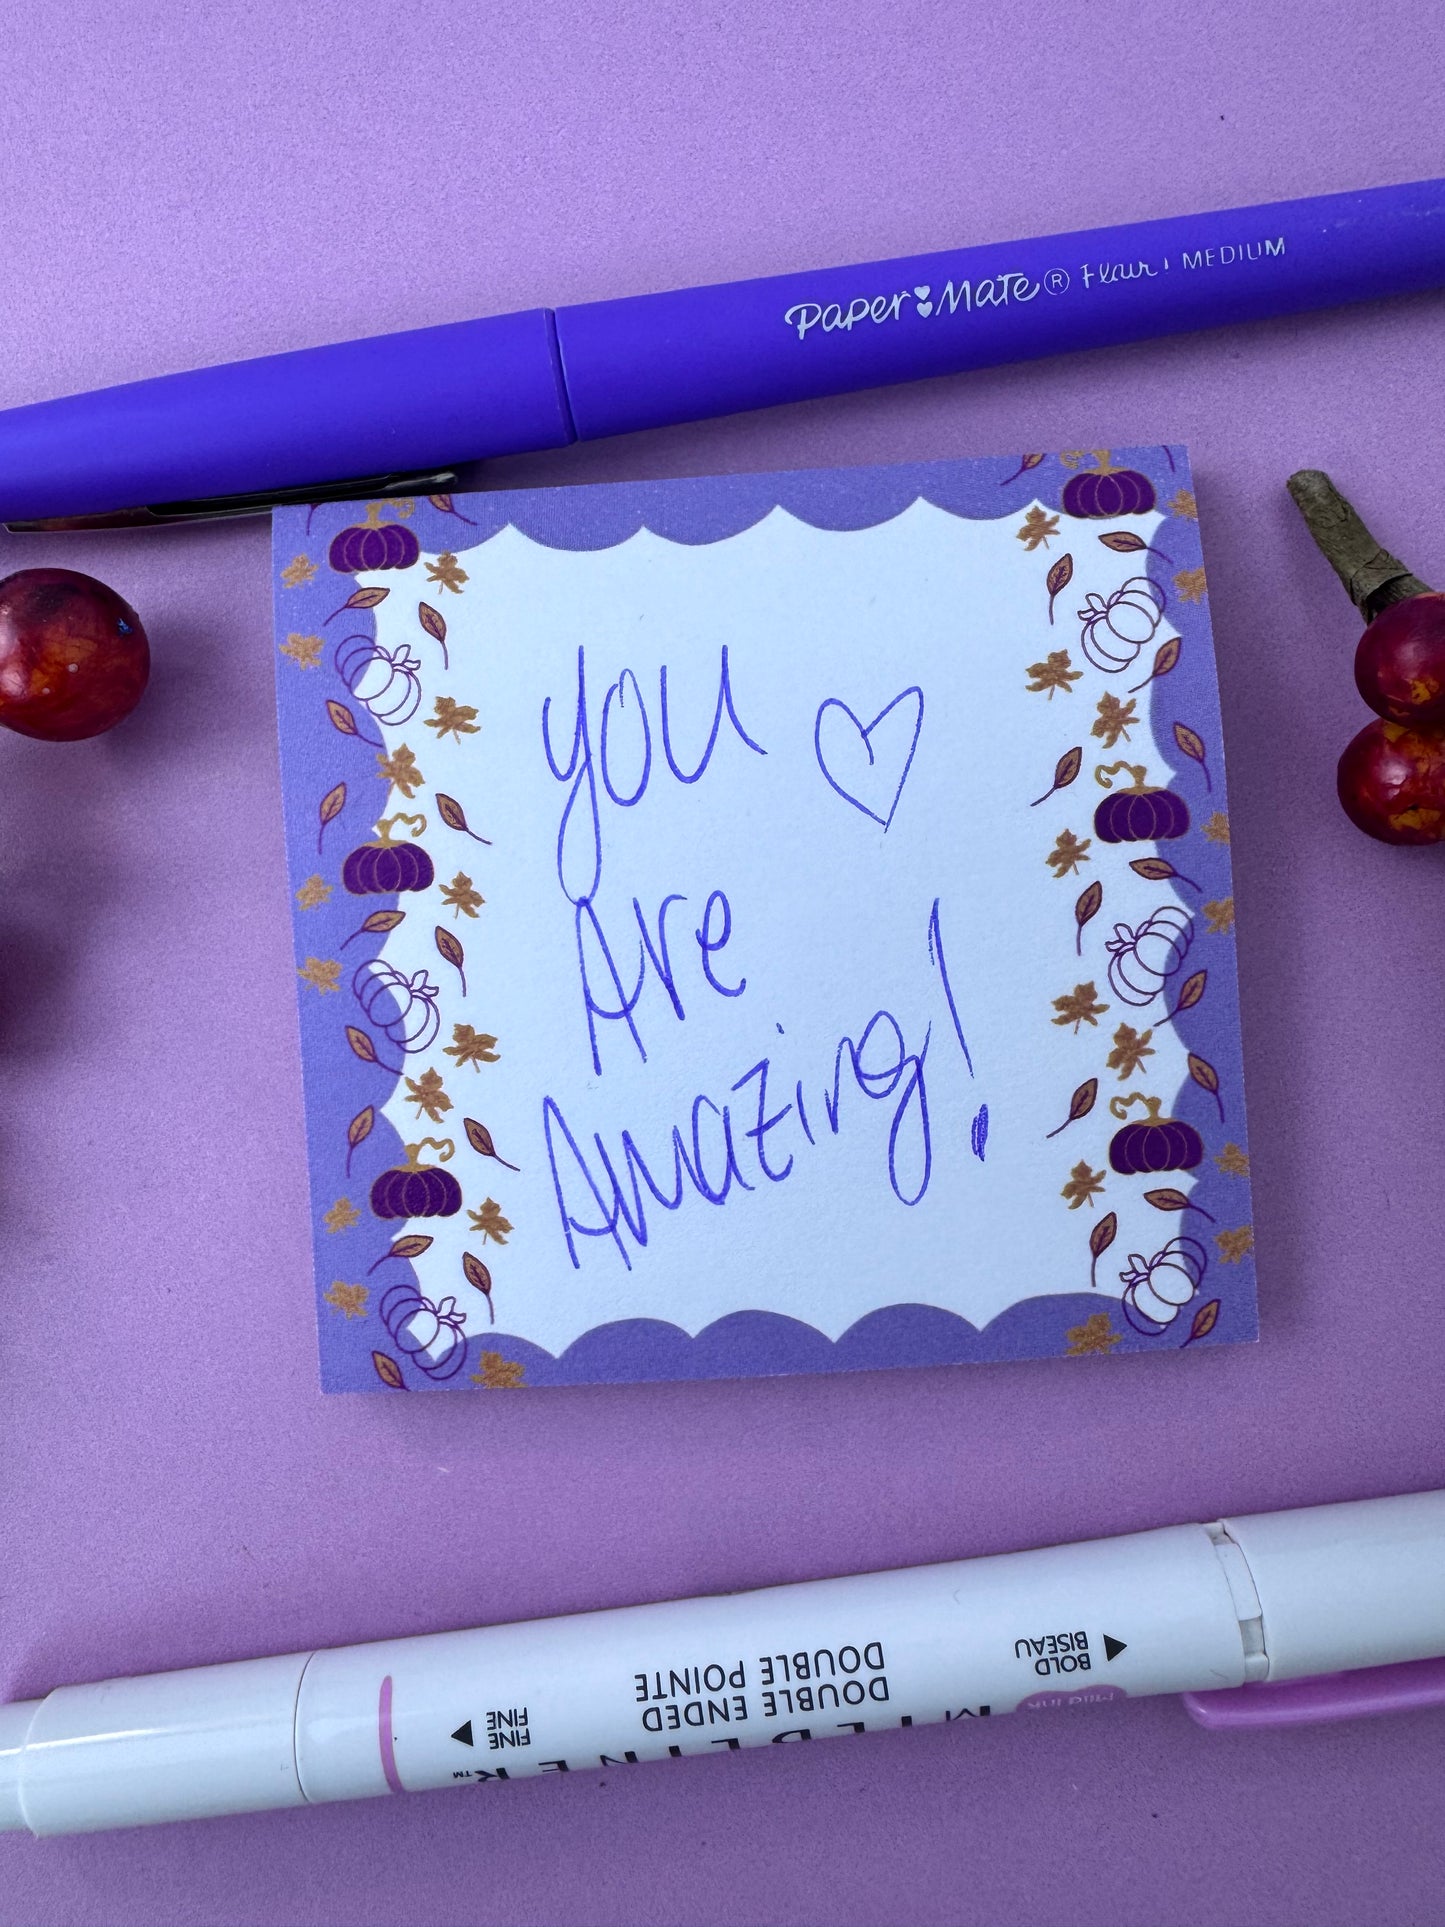 Paper Mate® Flair! MEDIUM
you
Are
Amazing!
BOLD
BISEAU
DOUBLE ENDED
DOUBLE POINTE
FINE
FINE
MILDLINER™
Mild ink